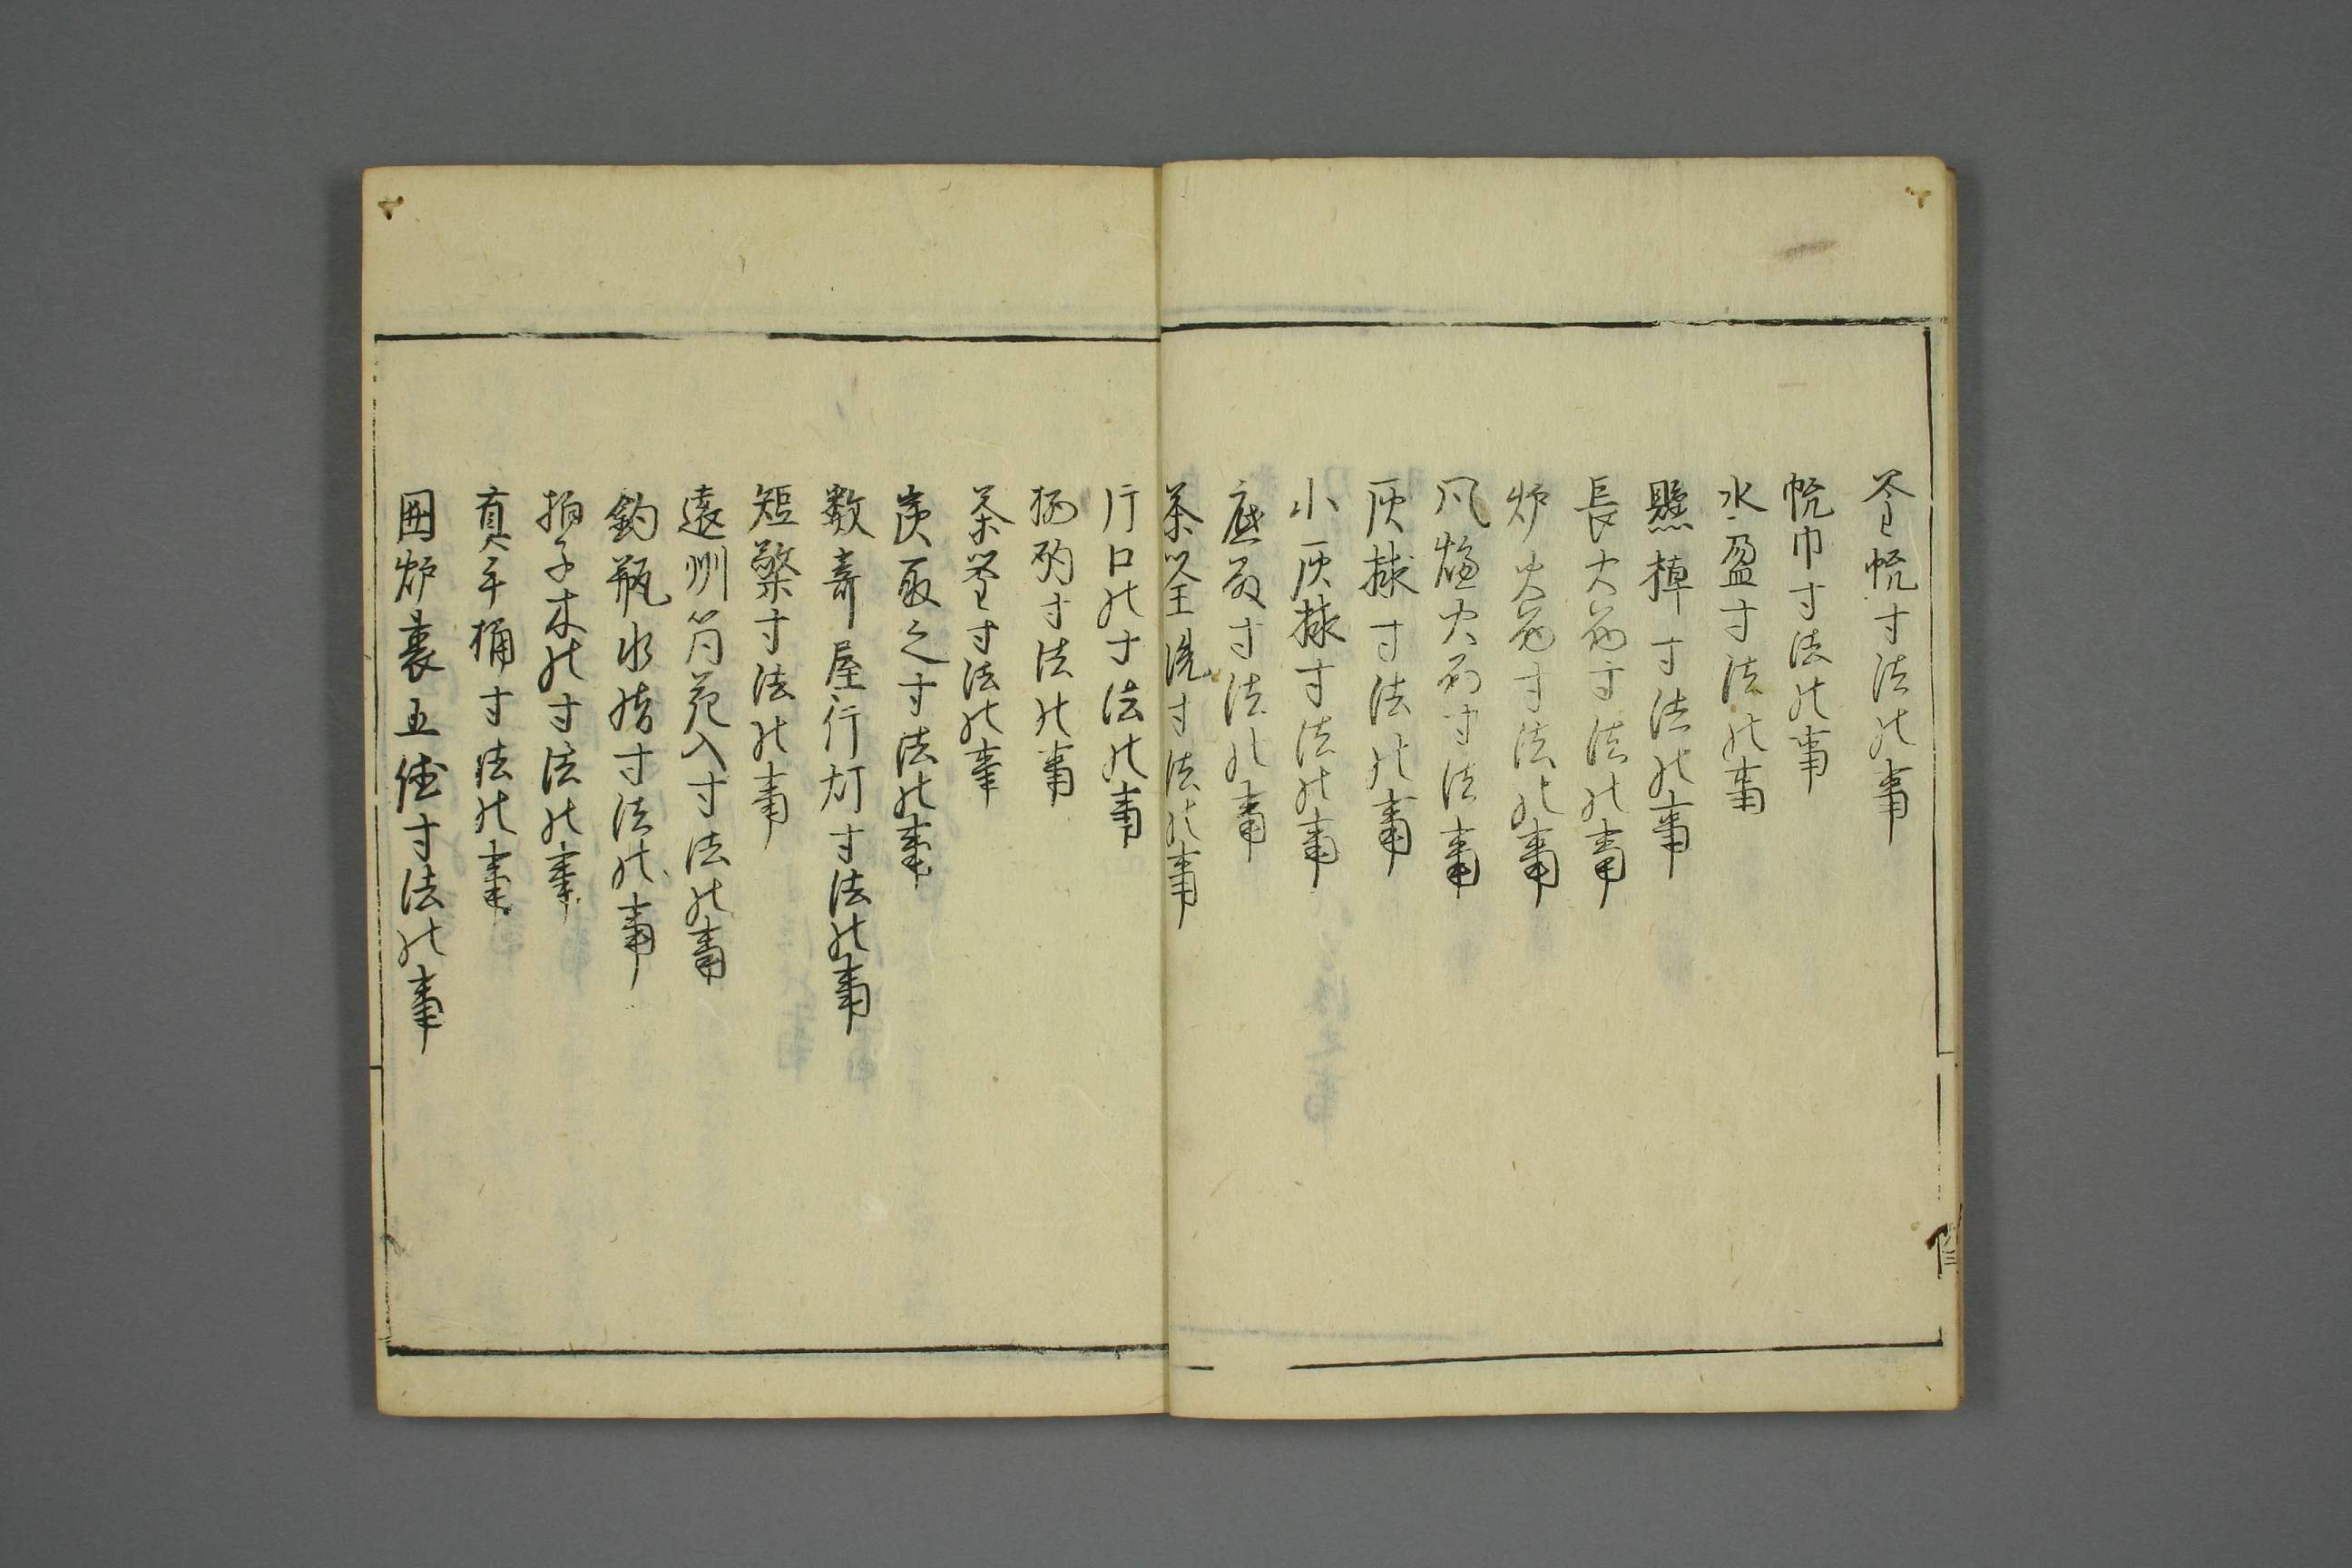 釜帨寸法之事
帨巾寸法之事
水盈寸法之事
懸棹寸法之事
長火筋寸法之事
炉火筋寸法之事
風爐火筋寸法事
灰捄寸法之事
小灰捄寸法之事
底取寸法之事
茶筌洗寸法之事
片口之寸法之事
柄杓寸法之事
茶筌寸法之事
炭取之寸法之事
数寄屋行灯寸法之事
短檠寸法之事
遠州筒花入寸法之事
釣瓶水指寸法之事
拍子木之寸法之事
真手桶寸法之事
囲炉裏五徳寸法之事